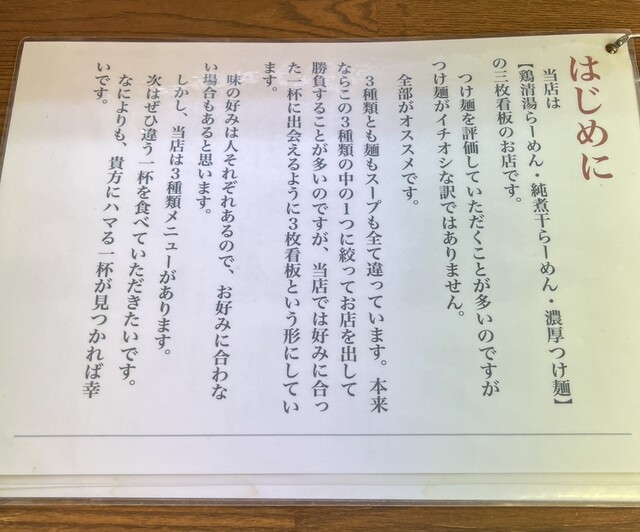 はじめに
当店は
【鶏清湯らーめん・純煮干らーめん・濃厚つけ麺】
の三枚看板のお店です。
つけ麺を評価していただくことが多いのですが
つけ麺がイチオシな訳ではありません。
全部がオススメです。
3種類とも麺もスープも全て違っています。本来
ならこの3種類の中の1つに絞ってお店を出して
勝負することが多いのですが、当店では好みに合っ
た一杯に出会えるように3枚看板という形にしてい
ます。
味の好みは人それぞれあるので、お好みに合わな
い場合もあると思います。
しかし、当店は3種類メニューがあります。
次はぜひ違う一杯を食べていただきたいです。
なによりも、貴方にハマる一杯が見つかれば幸
いです。